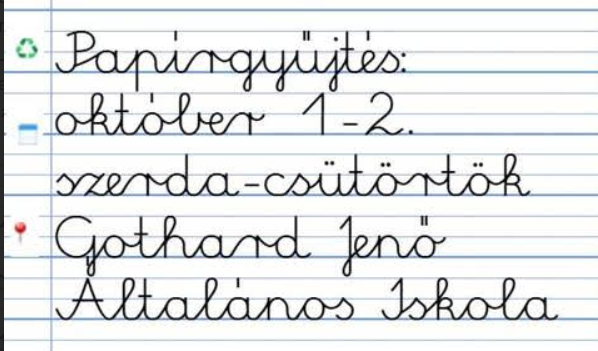 Papírgyűjtés:
október 1-2.
szerda-csütörtök
Gothard Jenő
Általános Iskola